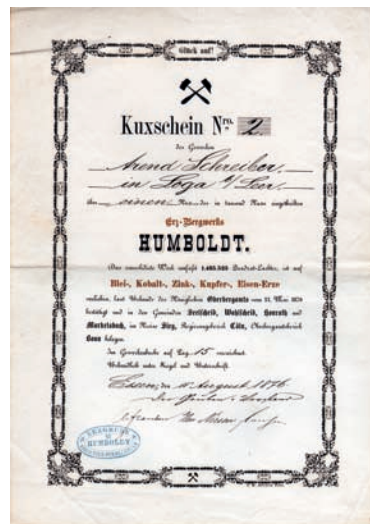 Glück auf!
Kuxschein Nro. 2.
des Gewerken
Arend Schreiber
in Loga a/Leer
über einen Kux der in tausend Kuxe eingetheilten
Erz-Bergwerks
HUMBOLDT.
Das consolidirte Werk umfaßt Quadrat-Lachter, ist auf
Blei-, Kobalt-, Zink-, Kupfer-, Eisen-Erze
verliehen, laut Urkunde des Königlichen Oberbergamts vom Mai
bestätigt und in den Gemeinden Wahlscheid, Honrath und
im Kreise Sieg, Regierungsbezirk Cöln, Oberbergamtsbezirk
Bonn belegen.
Im Gewerkenbuche auf Pag. 15 verzeichnet.
Urkundlich unter Siegel und Unterschrift.
Essen, den August 1876
Der Gruben-Vorstand
HUMBOLDT